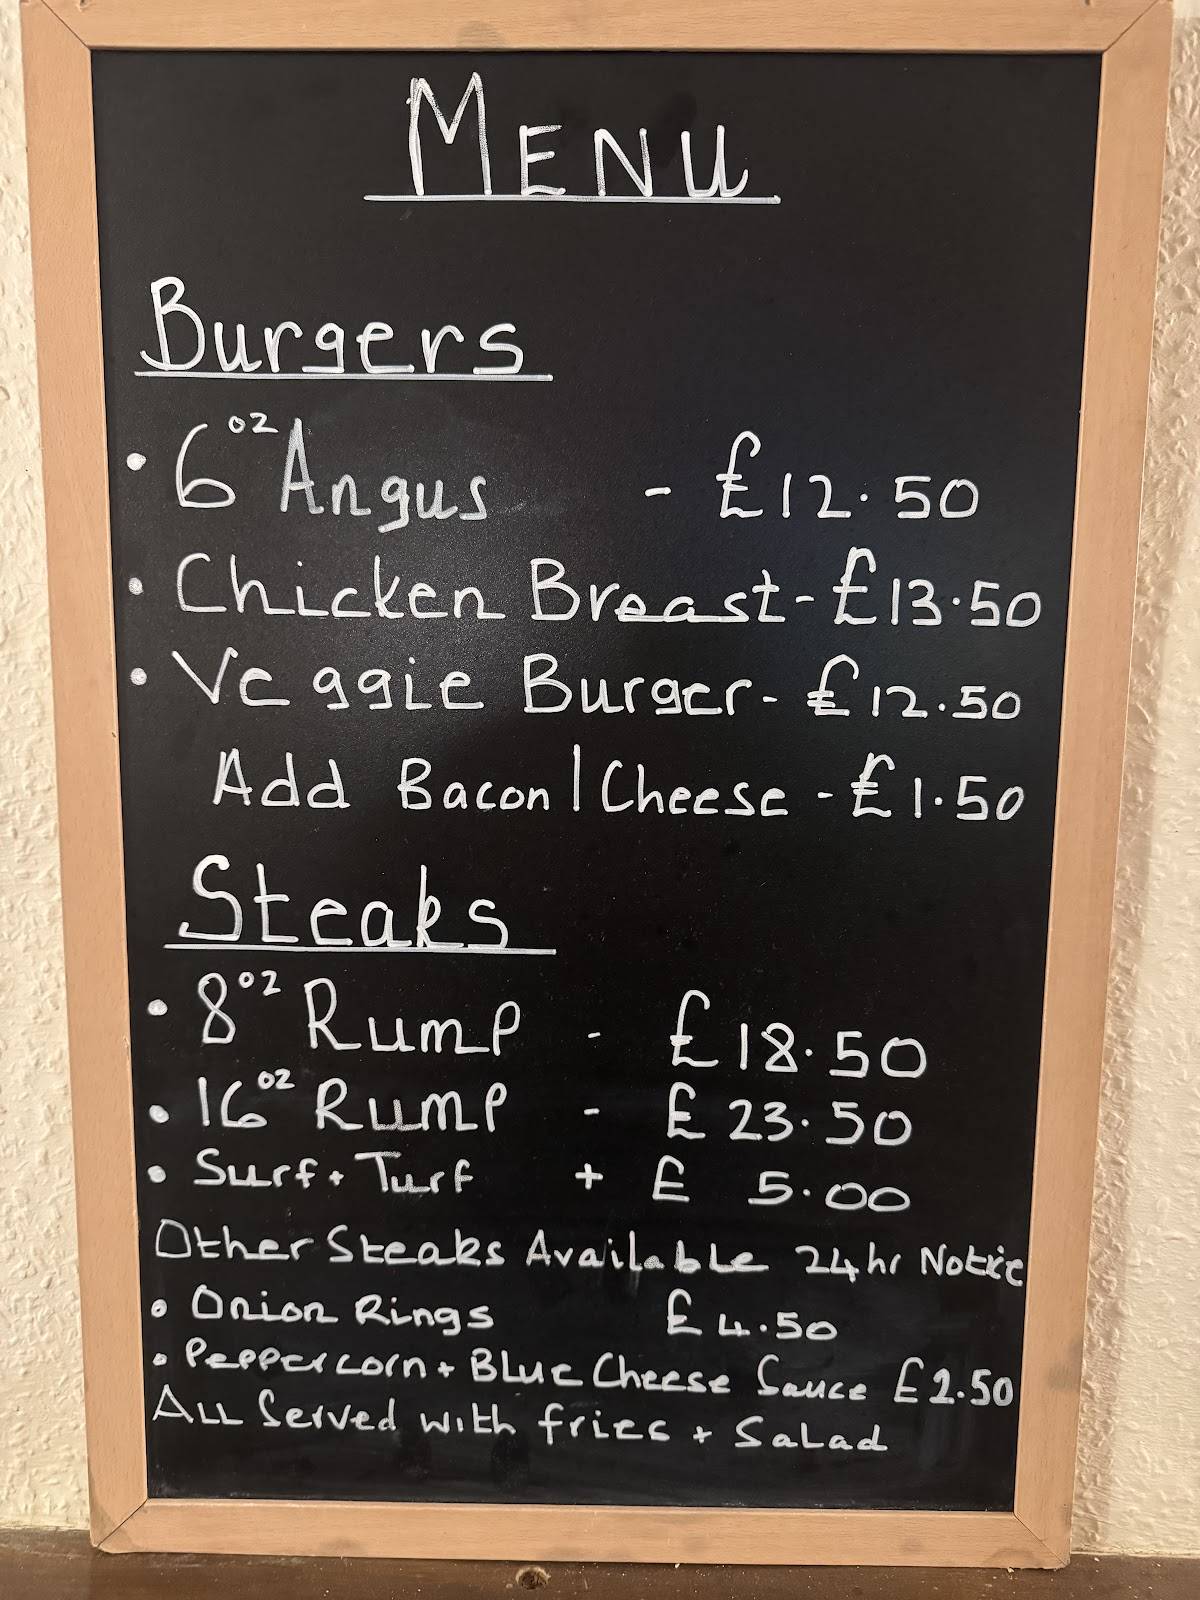 MENU
Burgers
• 6oz Angus - £12.50
• Chicken Breast - £13.50
• Veggie Burger - £12.50
Add Bacon | Cheese - £1.50
Steaks
• 8oz Rump - £18.50
• 16oz Rump - £23.50
• Surf + Turf + £ 5.00
Other Steaks Available 24hr Notice
• Onion Rings £4.50
• Peppercorn + Blue Cheese Sauce £2.50
All Served with fries + Salad